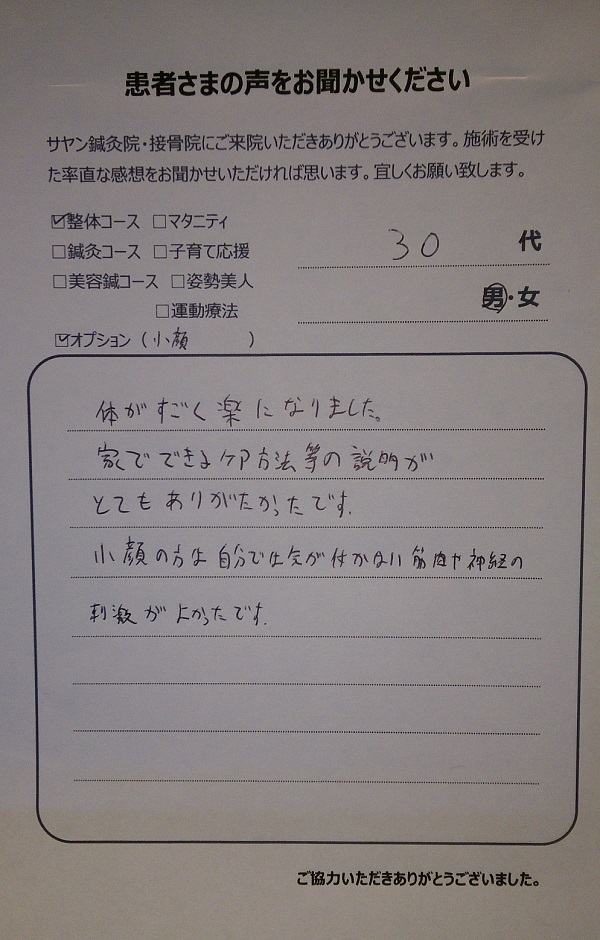 患者さまの声をお聞かせください
サヤン鍼灸院・接骨院にご来院いただきありがとうございます。施術を受け
た率直な感想をお聞かせいただければ思います。宜しくお願い致します。
☑整体コース □マタニティ
□鍼灸コース □子育て応援
□美容鍼コース □姿勢美人
□運動療法
☑オプション（小顔　　　）
30 代
男・女
体がすごく楽になりました。
家でできるケア方法等の説明が
とてもありがたかったです.
小顔の方は自分では気が付かない筋肉や神経の
刺激がよかったです.
ご協力いただきありがとうございました。